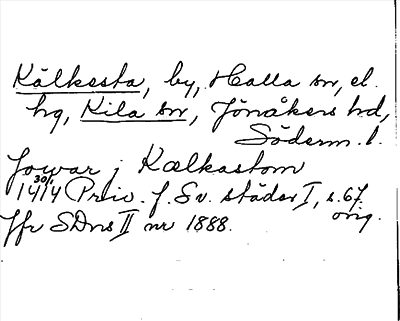 Kälkesta, by, Halla sn, el.
hg, Kila sn, Jönåkers hd,
Söderm. l.
Jowar j Kælkastom
30/1 1414 Priv. f. Sv. städer I, s. 67.
orig.
Jfr SDns II nr 1888.